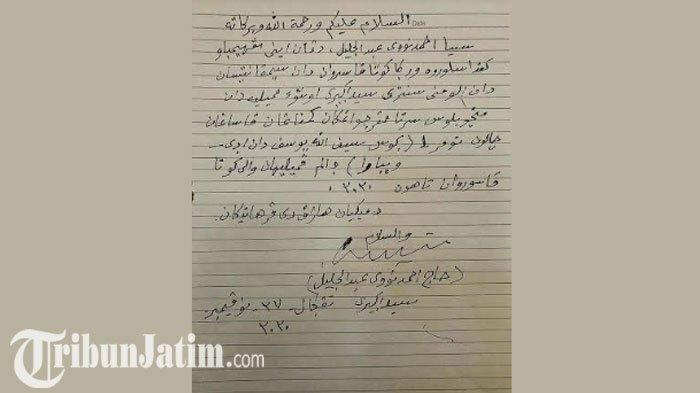 السلام عليكم ورحمة الله وبركاته
Date
سيا احمد نووى عبد الجليل، دڠان اينى مڠهيمباو
كفد اسلوروه ورݢا كوتا ڤاسروان دان سيمڤاتيسان
دان الومنى سنترى سيداݢيرى اونتوء مميليه دان
منچوبلوس سرتا ممڤرجواڠكان كمناڠان ڤاساڠان
چالون نومر ١ (ݢوس سيف الله يوسف دان ادى
ويباوا) دالم ڤميليهان والى كوتا
ڤاسوروان تاهون ٢٠٢٠.
دميكيان هاراڤ دى ڤرهاتيكان.
والسلام
(حاج احمد نووى عبد الجليل)
سيداݢيرى تڠݢال ٢٧ نوڤيمبر
٢٠٢٠
TribunJatim.com